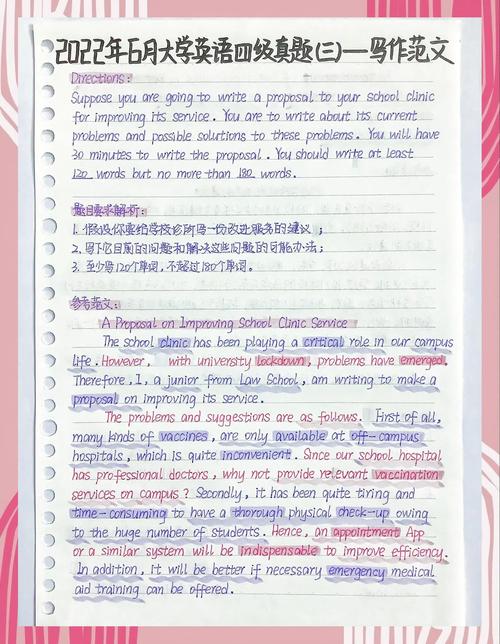 2022年6月大学英语四级真题(三)—写作范文
Directions:
Suppose you are going to write a proposal to your school clinic
for improving its service. You are to write about its current
problems and possible solutions to these problems. You will have
30 minutes to write the proposal. You should write at least
120 words but no more than 180 words.
题目要求解析:
1. 假设你要给学校诊所写一份改进服务的建议;
2. 写下它目前的问题和解决这些问题的可能办法;
3. 至少写120个单词,不超过180个单词。
参考范文:
A Proposal on Improving School Clinic Service
The school clinic has been playing a critical role in our campus
life. However, with university lockdown, problems have emerged.
Therefore, I, a junior from Law School, am writing to make a
proposal on improving its service.
The problems and suggestions are as follows. First of all,
many kinds of vaccines, are only available at off-campus
hospitals, which is quite inconvenient. Since our school hospital
has professional doctors, why not provide relevant vaccination
services on campus? Secondly, it has been quite tiring and
time-consuming to have a thorough physical check-up owing
to the huge number of students. Hence, an appointment App
or a similar system will be indispensable to improve efficiency.
In addition, it will be better if necessary emergency medical
aid training can be offered.